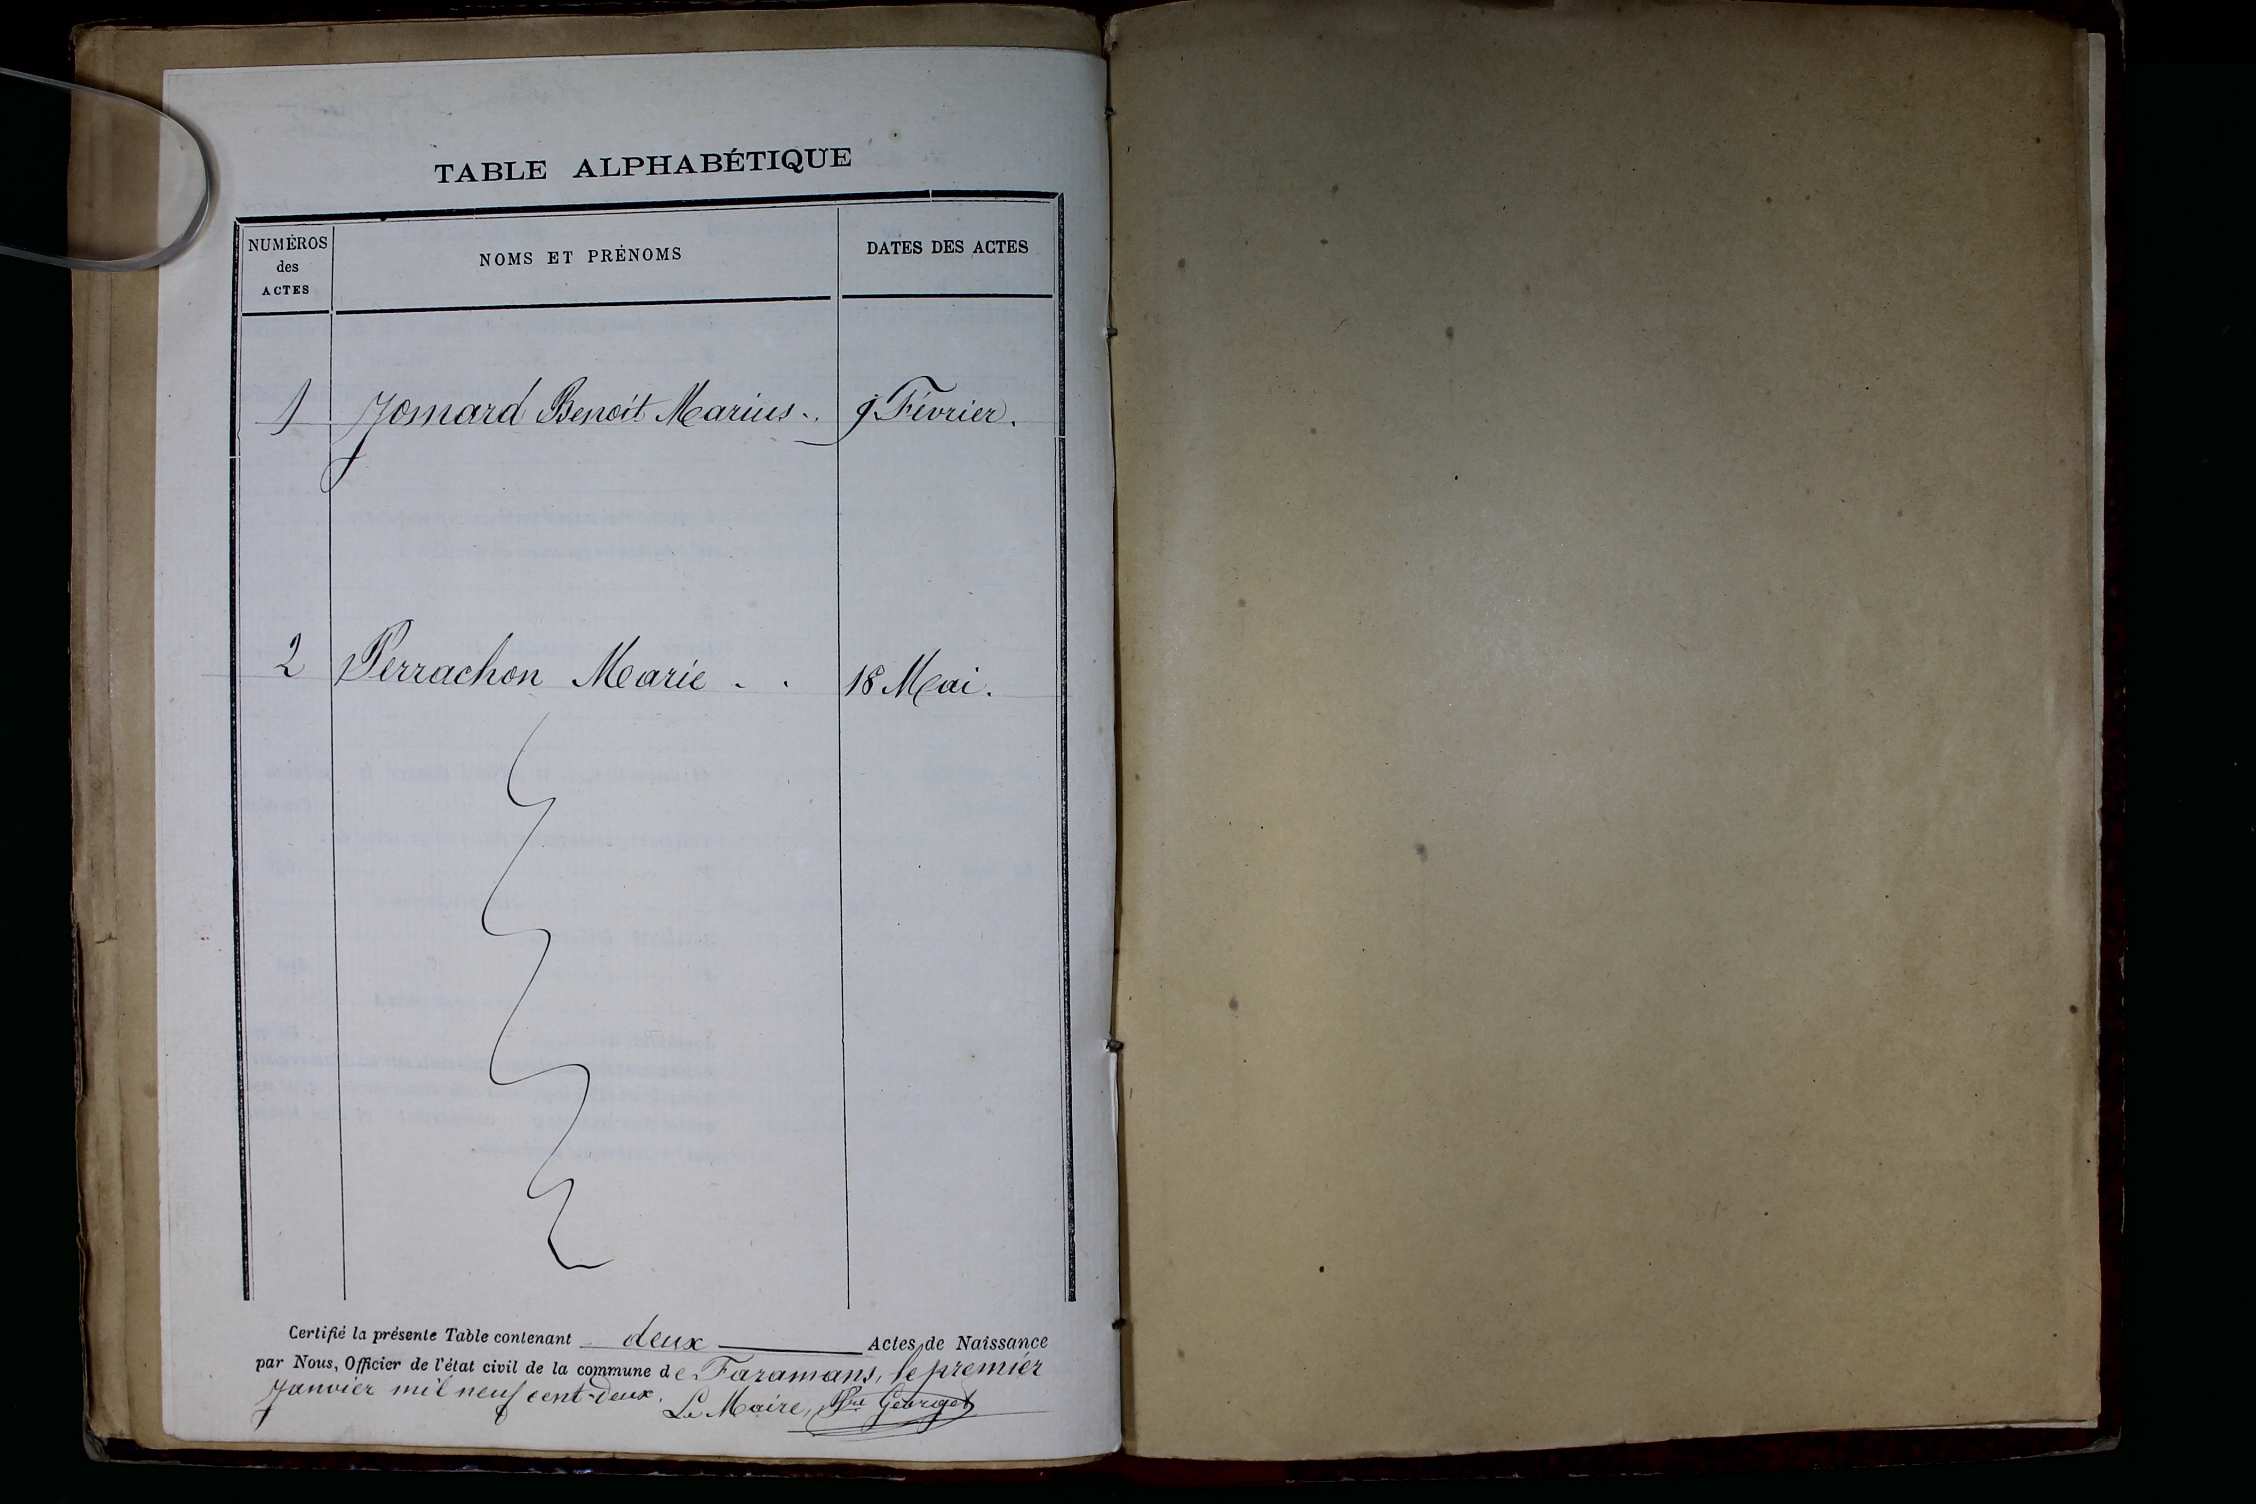 TABLE ALPHABÉTIQUE
NUMÉROS
des
ACTES
NOMS ET PRÉNOMS
DATES DES ACTES
1 Jomard Benoit Marius. 9 Février.
2 Perrachon Marie . . 18 Mai.
Certifié la présente Table contenant deux Actes de Naissance
par Nous, Officier de l'état civil de la commune de Faramans, le premier
Janvier mil neuf cent-deux.
Le Maire, Georget